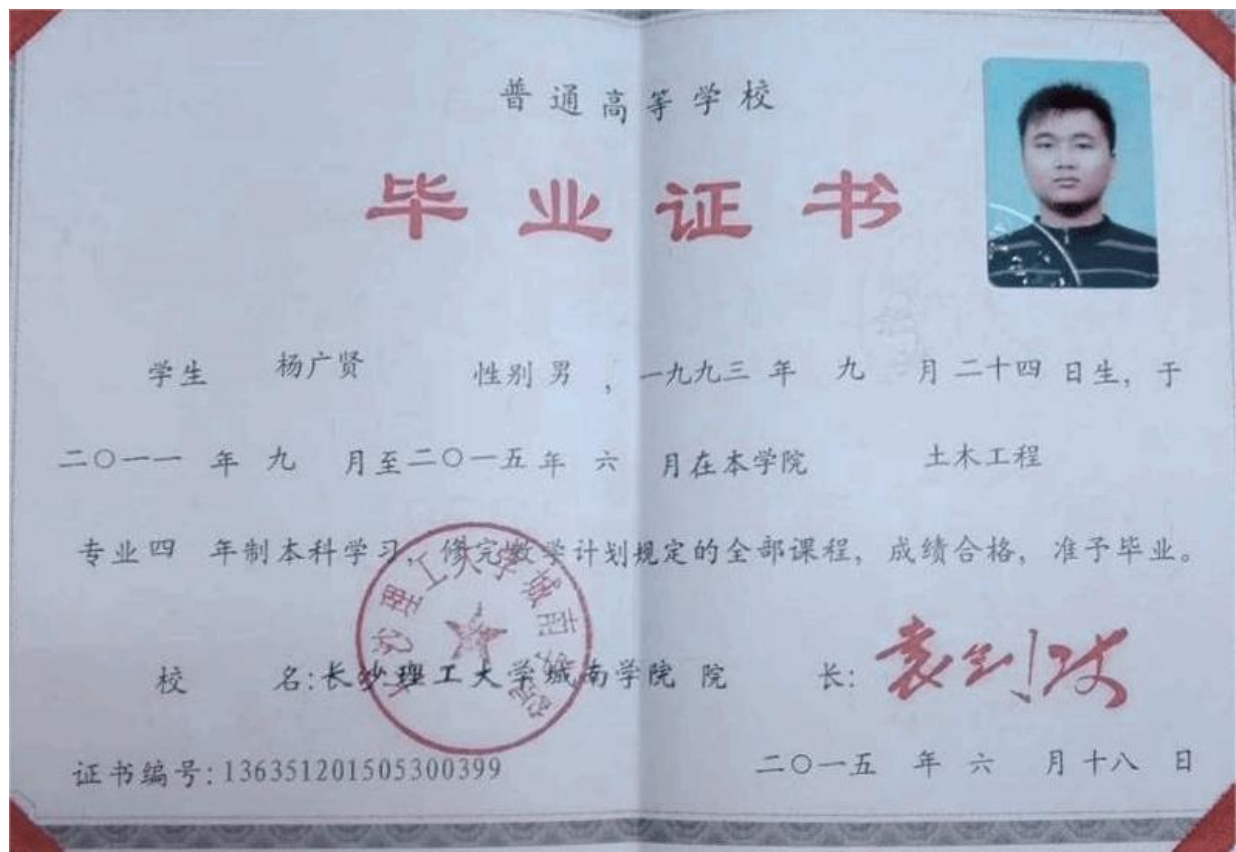 普通高等学校
毕业证书
学生 杨广贤 性别 男 ,一九九三 年 九 月 二十四 日生, 于
二〇一一 年 九 月至二〇一五 年 六 月在本学院 土木工程
专业 四 年制本科学习, 修完教学计划规定的全部课程, 成绩合格, 准予毕业。
长沙理工大学城南学院
校 名:长沙理工大学城南学院 院 长:
证书编号:136351201505300399 二〇一五 年 六 月 十八 日